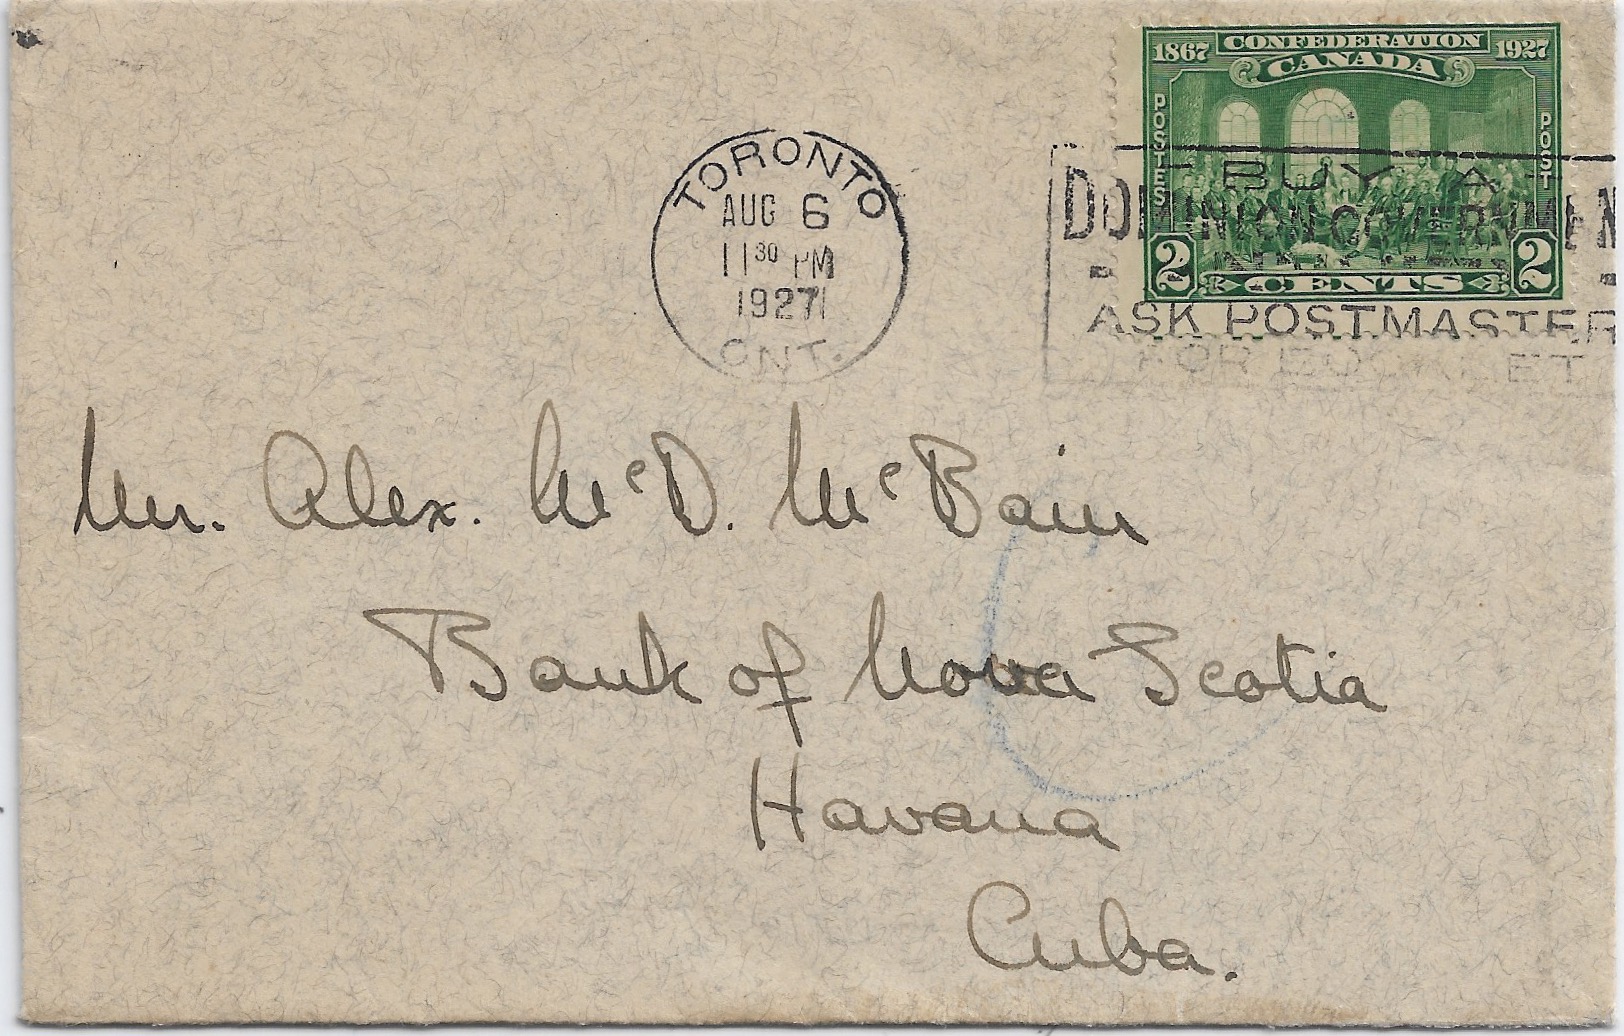 1867 CONFEDERATION 1927
CANADA
POSTES
POST
2 CENTS 2
TORONTO
AUG 6
11 30 PM
1927
ONT.
BUY A
DOMINION GOVERNMEN
ASK POSTMASTER
FOR BOOKLET
Mr. Alex. McD. McBain
Bank of Nova Scotia
Havana
Cuba.